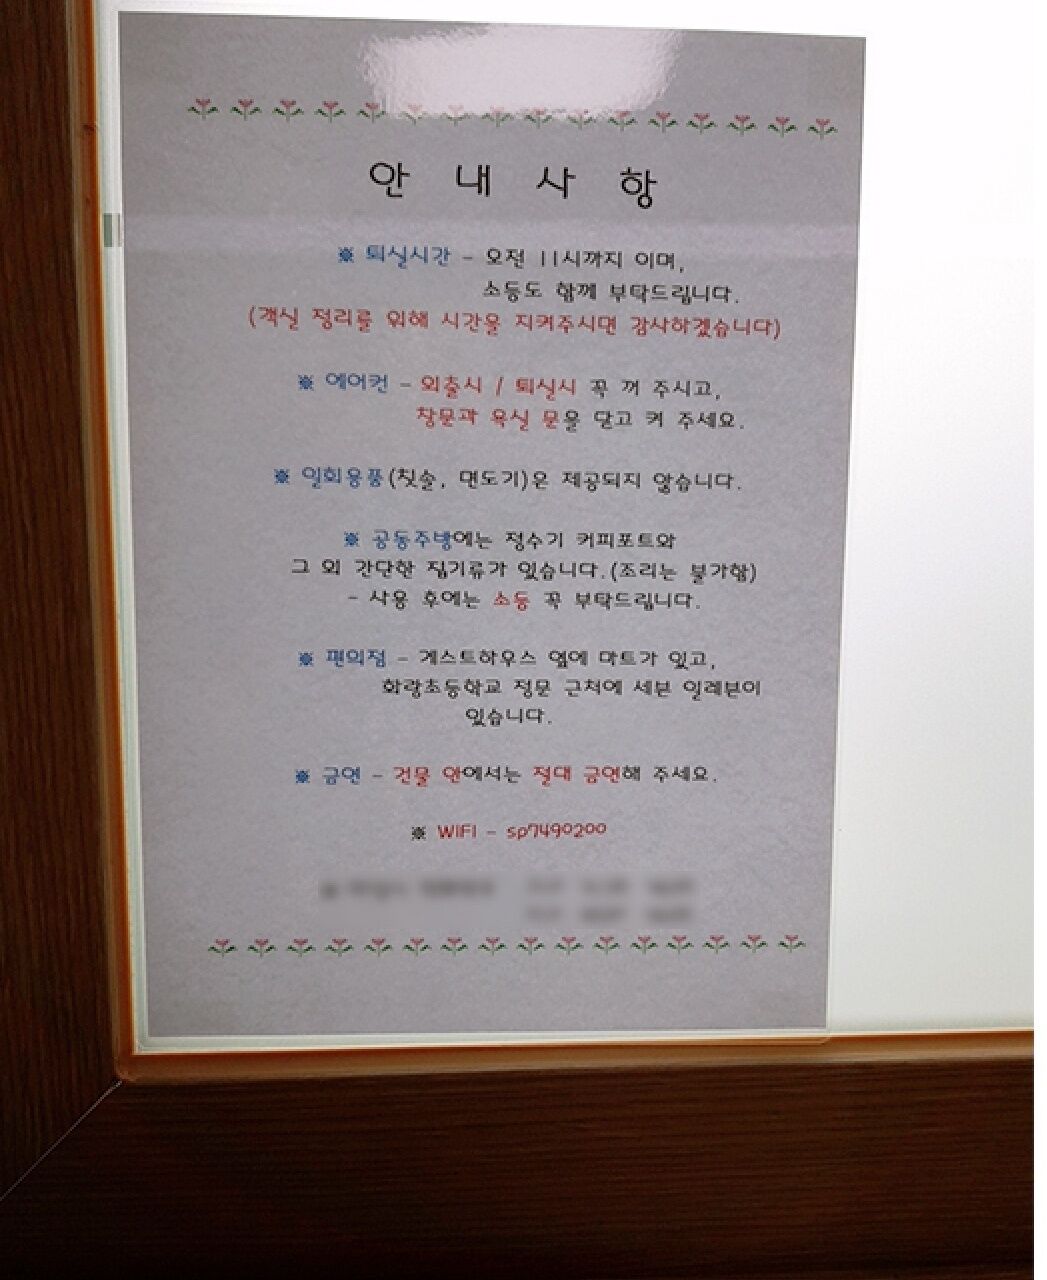 안 내 사 항
※ 퇴실시간 - 오전 11시까지 이며,
소등도 함께 부탁드립니다.
(객실 정리를 위해 시간을 지켜주시면 감사하겠습니다)
※ 에어컨 - 외출시 / 퇴실시 꼭 꺼 주시고,
창문과 욕실 문을 닫고 켜 주세요.
※ 일회용품(칫솔, 면도기)은 제공되지 않습니다.
※ 공동주방에는 정수기 커피포트와
그 외 간단한 집기류가 있습니다.(조리는 불가함)
- 사용 후에는 소등 꼭 부탁드립니다.
※ 편의점 - 게스트하우스 옆에 마트가 있고,
화랑초등학교 정문 근처에 세븐 일레븐이
있습니다.
※ 금연 - 건물 안에서는 절대 금연해 주세요.
※ WIFI - sp7490200